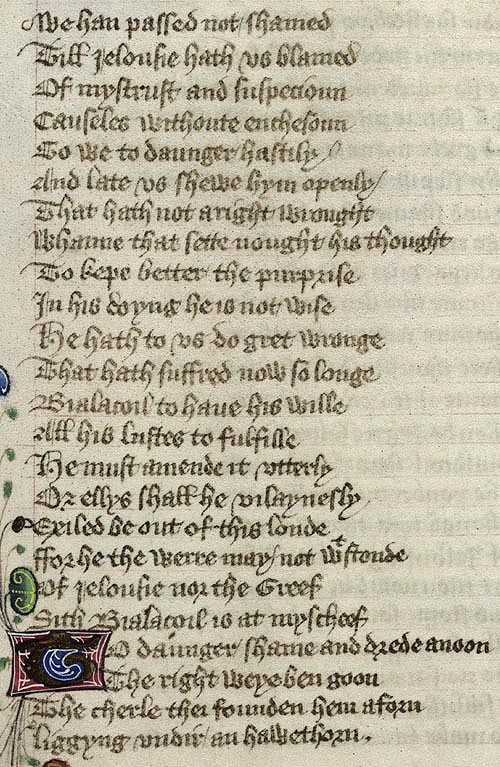 We han passed not shamed
Till Jelousie hath vs blamed
Of mystrust and suspecioun
Causeles withoute enchesoun
To we to daunger hastily
And late vs shewe hym openly
That hath not aright wrought
Whanne that sette nought his thought
To kepe better the purprise
In his doyng he is not wise
He hath to vs do gret wronge
That hath suffred now so longe
Bialacoil to haue his wille
All his lustes to fulfille
He must amende it vtterly
Or ellys shall he vilaynesly
Exiled be out of this londe
ffor he the werre may not wͭstonde
Of Jelousie nor the Greef
Sith Bialacoil is at myscheef
To daunger shame and drede anoon
The right weye ben goon
The cherle thei founden hem aforn
liggyng vndir an hawethorn.